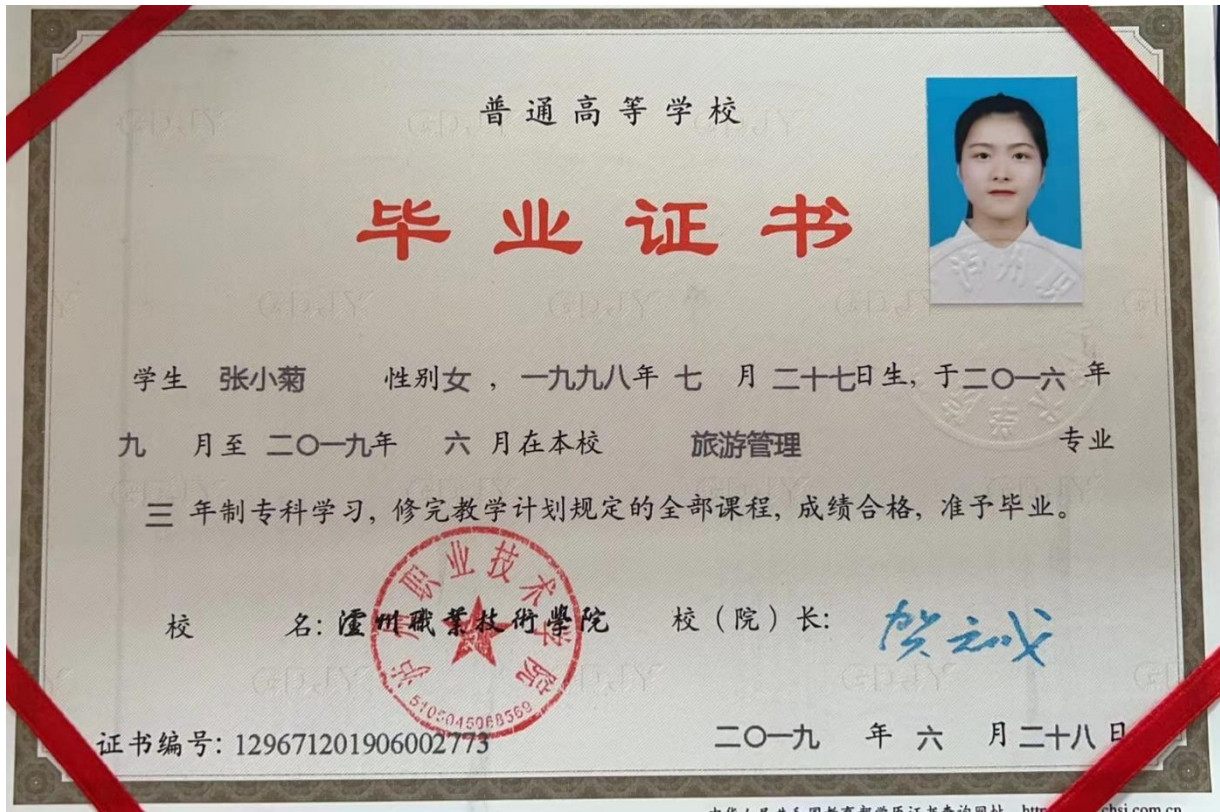 普通高等学校
毕业证书
学生 张小菊 性别 女 , 一九九八年 七 月 二十七日生, 于二〇一六 年
九 月至 二〇一九年 六 月在本校 旅游管理 专业
三 年制专科学习, 修完教学计划规定的全部课程, 成绩合格, 准予毕业。
校 名: 瀘州職業技術學院 校（院）长: 贺元成
泸州职业技术学院
5105045068569
证书编号: 129671201906002773 二〇一九 年 六 月 二十八 日
中华人民共和国教育部学历证书查询网站 http chsi.com.cn